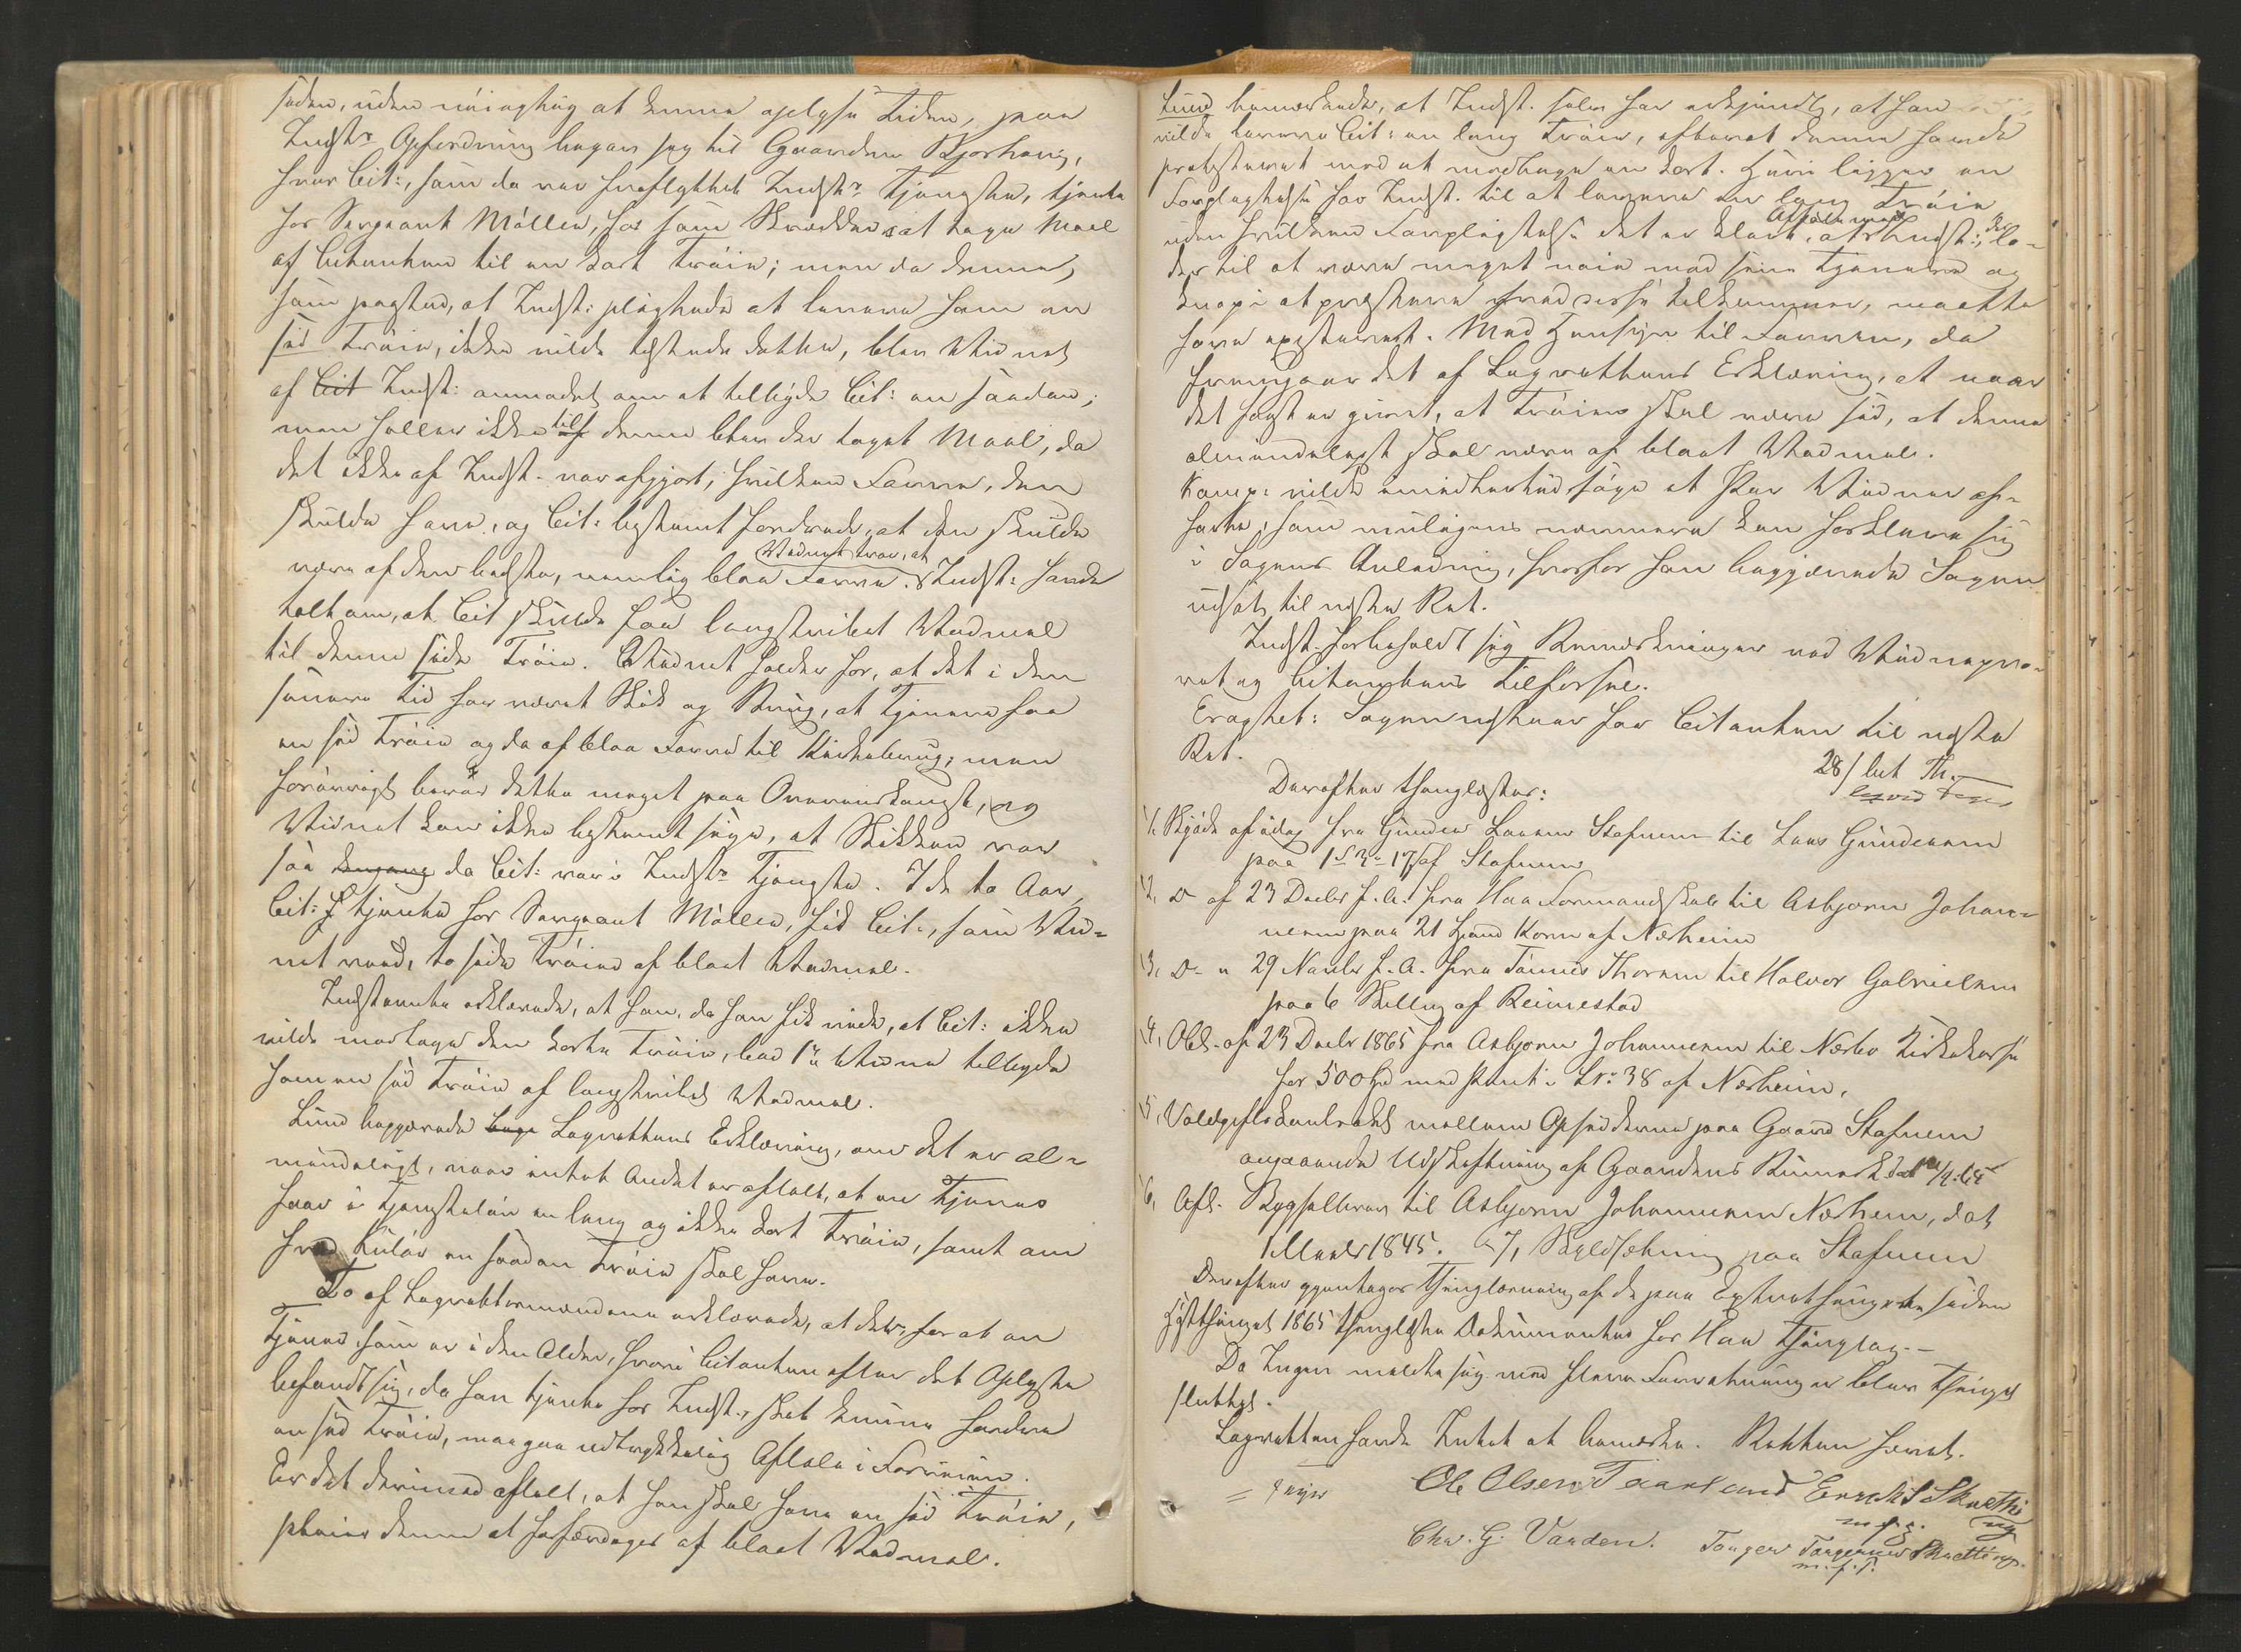 siden, uden nøiagtig at kunne oplyse Tiden, paa
Indst.s Opfordring begav sig til Gaarden Bjorhaug,
hvor Cit:, som da var fraflyttet Indst.s Tjeneste, tjente
hos Sergeant Møller, for som Skrædder at tage Maal
af Citanten til en kort Trøie; men da denne,
som paastod, at Indst: pligtede at levere ham en
sid Trøie, ikke vilde tilstede dette, blev Vidnet
af Cit Indst: anmodet om at tilbyde Cit: en saadan;
men heller ikke til denne blev der taget Maal, da
det ikke af Indst. var afgjort, hvilken Farve, den
skulde have, og Cit: bestemt fordrede, at den skulde
være af den bedste, nemlig blaa Farve.
Vidnet tror, at
Indst: havde
talt om, at Cit skulde faa langstribet Vadmel
til denne side Trøie. Vidnet holder for, at det i den
senere Tid har været Skik og Brug, at Tjenere faa
en sid Trøie og da af blaa Farve til Kirkebrug; men
forøvrigt beror dette meget paa Overenskomst, og
Vidnet kan ikke bestemt sige, at Skikken var
saa dengang da Cit: var i Indst.s Tjeneste. I de to Aar,
Cit: tjente hos Sergeant Møller, fik Cit:, som Vid-
net veed, to side Trøier af blaat Vadmel.
Indstevnte erklærede, at han, da han fik vide, at Cit: ikke
vilde modtage den korte Trøie, bad 1ste Vidne tilbyde
ham en sid Trøie af langstribet Vadmel.
Lund begjærede Lagrettens Erklæring, om det er al-
mindeligt, naar intet Andet er aftalt, at en Tjener
faar i Tjenesteløn en lang og ikke kort Trøie, samt om
hvad Kulør en saadan Trøie skal have.
To af Lagrettesmændene erklærede, at der, for at en
Tjener som er i den Alder, hvori Citanten efter det Oplyste
befandt sig, da han tjente hos Indst., skal kunne fordre
en sid Trøie, maa gaa udtrykkelig Aftale i Forveien.
Er det derimod aftalt, at han skal have en sid Trøie,
pleier denne at forfærdiges af blaat Vadmel.
Lund bemærkede, at Indst. selv har erkjendt, at han
vilde levere Cit: en lang Trøie, efterat denne havde
protesteret mod at modtage en kort. Heri ligger en
Forpligtelse for Indst. til at levere en lang Trøie
uden hvilken Forpligtelse
Aftale med
det er klart, at Indst:, der la-
der til at være meget nøie mod sine Tjenere og
knap i at præstere hvad disse tilkommer, maatte
have existeret. Med Hensyn til Farven, da
fremgaar det af Lagrettens Erklæring, at naar
det først er givet, at Trøien skal være sid, at denne
almindeligst skal være af blaat Vadmel.
Komp: vilde imidlertid søge et Par Vidner af-
hørte, som muligens nærmere kan forklare sig
i Sagens Anledning, hvorfor han begjærede Sagen
udsat til næste Ret.
Indst. forbeholdt sig Bemærkninger ved Vidnepro-
vet og Citantens Tilførsel.
Eragtet: Sagen udstaar for Citanten til næste
Ret.
28/
Derefter thinglæstes:
1, Skjøde af idag fra Gunder Larsen Stafnem til Lars Gundersen
paa 1 3 17 af Stafnem
2, Do af 23 Decbr f. A. fra Haa Formandskab til Asbjørn Johan-
nesen paa 21 Spand Korn af Nærheim
3, Do " 29 Novbr f. A. fra Tønnes Thorsen til Halvor Gabrielsen
paa 6 Skilling af Reimestad
4, Obl. af 23 Decbr 1865 fra Asbjørn Johannesen til Nærbø Kirkekasse
for 500 Spd med Pant i Lr: 38 af Nærheim.
5, Voldgiftskontrakt mellem Opsidderne paa Gaard Stafnem
angaaende Udskiftning af Gaardens
6, Afl. Bygselbrev til Asbjørn Johannesen Nærheim, dat
1845. 7, Skyldsætning paa Stafnem
Derefter gjentages Thinglæsning af de paa Extrathingene siden
Høstthinget 1865 thinglæste Dokumenter for Haa Thinglag.-
Da Ingen meldte sig med flere Forretninger blev Thinget
sluttet.
Lagretten havde Intet at bemærke. Retten hævet.
Ole Olsen Taarland
m. f. P.
Chr. G. Varden. Torger Torgersen
m. f. P.